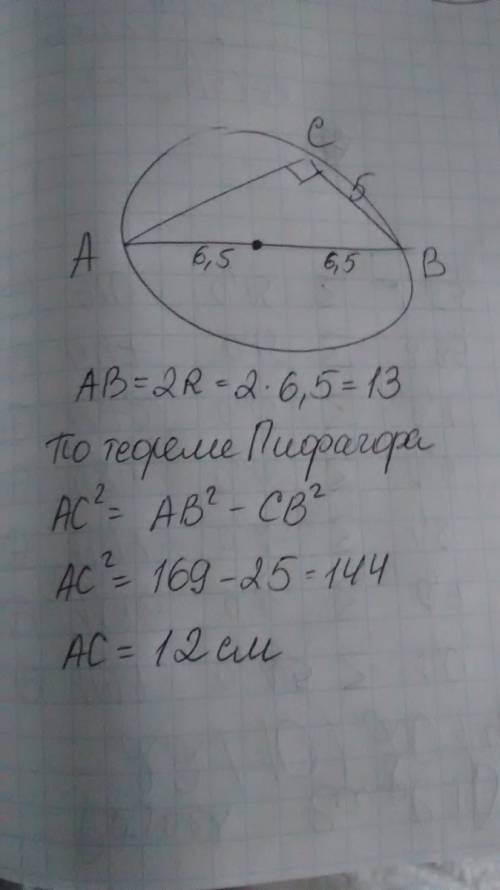 C
5
A
6,5
6,5
B
AB = 2R = 2 · 6,5 = 13
По теореме Пифагора
AC² = AB² - CB²
AC² = 169 - 25 = 144
AC = 12 см